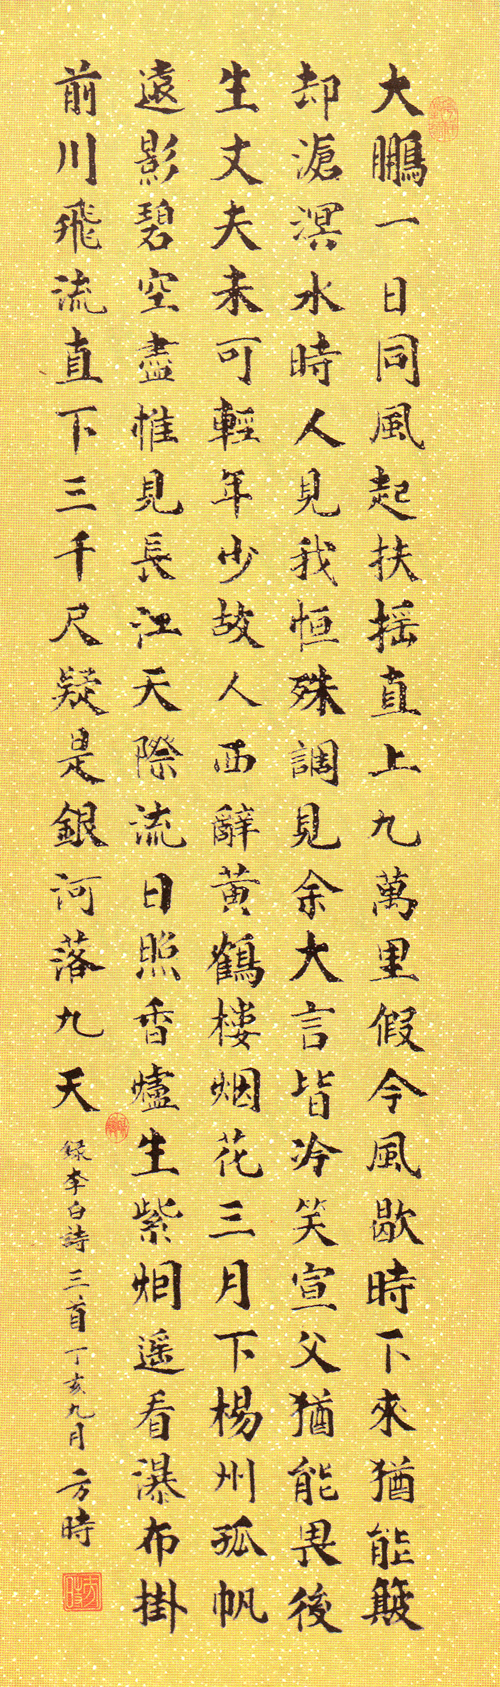 大鵬一日同風起扶摇直上九萬里假令風歇時下來猶能簸
却滄溟水時人見我恒殊調見余大言皆冷笑宣父猶能畏後
生丈夫未可輕年少故人西辭黄鶴樓烟花三月下楊州孤帆
遠影碧空盡惟見長江天際流日照香爐生紫烟遥看瀑布掛
前川飛流直下三千尺疑是銀河落九天 録李白詩三首丁亥九月方時